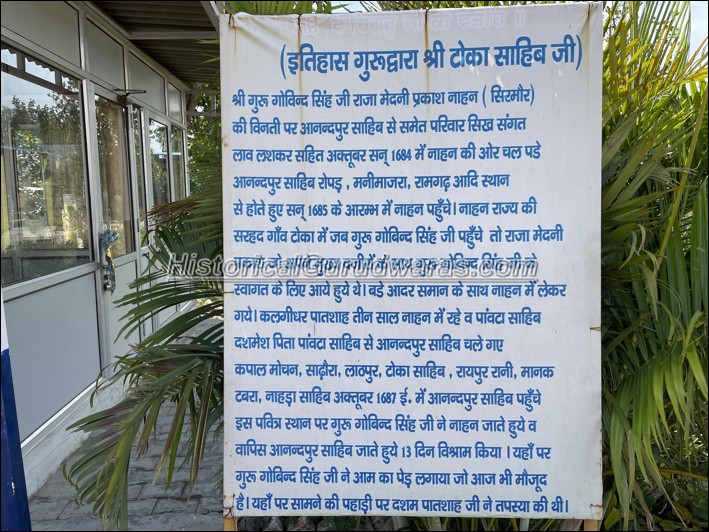 (इतिहास गुरूद्वारा श्री टोका साहिब जी)
श्री गुरू गोविन्द सिंह जी राजा मेदनी प्रकाश नाहन ( सिरमौर)
की विनती पर आनन्दपुर साहिब से समेत परिवार सिख संगत
लाव लशकर सहित अक्तूबर सन् 1684 में नाहन की ओर चल पडे
आनन्दपुर साहिब रोपड़ , मनीमाजरा, रामगढ़ आदि स्थान
से होते हुए सन् 1685 के आरम्भ में नाहन पहुँचे। नाहन राज्य की
सरहद गाँव टोका में जब गुरू गोबिन्द सिंह जी पहुंचे तो राजा मेदनी
HistoricalGurudwaras.com
स्वागत के लिए आये हुये थे। बडे आदर समान के साथ नाहन में लेकर
गये। कलगीधर पातशाह तीन साल नाहन में रहे व पांवटा साहिब
दशमेश पिता पांवटा साहिब से आनन्दपुर साहिब चले गए
कपाल मोचन, साढ़ौरा, लाठपुर, टोका साहिब , रायपुर रानी, मानक
टबरा, नाहड़ा साहिब अक्तूबर 1687 ई. में आनन्दपुर साहिब पहुँचे
इस पवित्र स्थान पर गुरू गोबिन्द सिंह जी ने नाहन जाते हुये व
वापिस आनन्दपुर साहिब जाते हुये 13 दिन विश्राम किया । यहाँ पर
गुरू गोबिन्द सिंह जी ने आम का पेड़ लगाया जो आज भी मौजूद
है। यहाँ पर सामने की पहाड़ी पर दशम पातशाह जी ने तपस्या की थी।